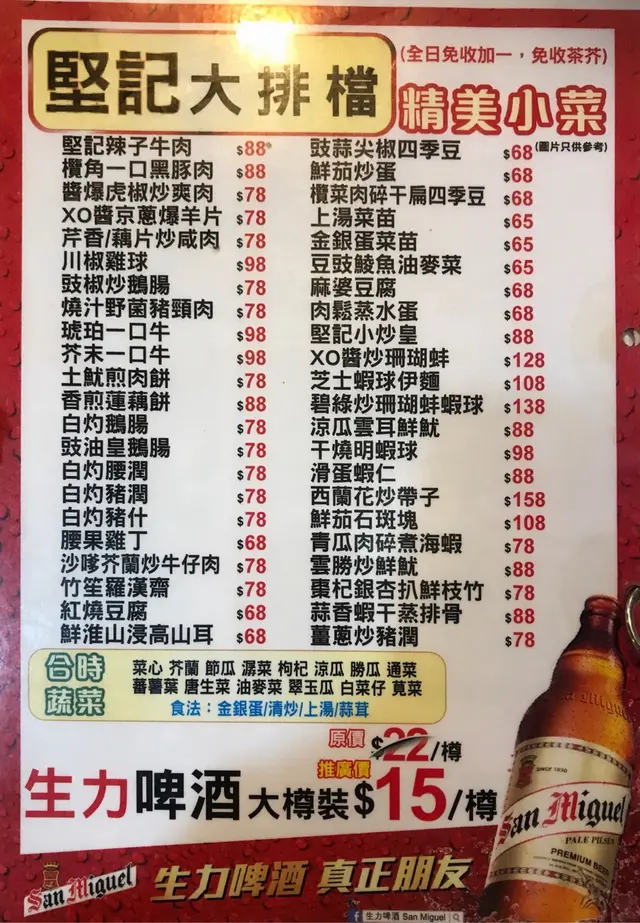 堅記大排檔
(全日免收加一，免收茶芥)
精美小菜
(圖片只供參考)
堅記辣子牛肉 $88
欖角一口黑豚肉 $88
醬爆虎椒炒爽肉 $78
XO醬京蔥爆羊片 $78
芹香/藕片炒咸肉 $78
川椒雞球 $98
豉椒炒鵝腸 $78
燒汁野菌豬頸肉 $78
琥珀一口牛 $98
芥末一口牛 $98
土魷煎肉餅 $78
香煎蓮藕餅 $88
白灼鵝腸 $78
豉油皇鵝腸 $78
白灼腰潤 $78
白灼豬潤 $78
白灼豬什 $78
腰果雞丁 $68
沙嗲芥蘭炒牛仔肉 $78
竹笙羅漢齋 $78
紅燒豆腐 $68
鮮淮山浸高山耳 $68
豉蒜尖椒四季豆 $68
鮮茄炒蛋 $68
欖菜肉碎干扁四季豆 $68
上湯菜苗 $65
金銀蛋菜苗 $65
豆豉鯪魚油麥菜 $65
麻婆豆腐 $68
肉鬆蒸水蛋 $68
堅記小炒皇 $88
XO醬炒珊瑚蚌 $128
芝士蝦球伊麵 $108
碧綠炒珊瑚蚌蝦球 $138
涼瓜雲耳鮮魷 $88
干燒明蝦球 $98
滑蛋蝦仁 $88
西蘭花炒帶子 $158
鮮茄石斑塊 $108
青瓜肉碎煮海蝦 $78
雲勝炒鮮魷 $88
棗杞銀杏扒鮮枝竹 $78
蒜香蝦干蒸排骨 $88
薑蔥炒豬潤 $78
合時蔬菜
菜心 芥蘭 節瓜 潺菜 枸杞 涼瓜 勝瓜 通菜
蕃薯葉 唐生菜 油麥菜 翠玉瓜 白菜仔 莧菜
食法：金銀蛋/清炒/上湯/蒜茸
原價 $22/樽
推廣價
生力啤酒 大樽裝 $15/樽
San Miguel
生力啤酒 真正朋友
生力啤酒 San Miguel
SINCE 1890
San Miguel
PALE PILSEN
PREMIUM BEER